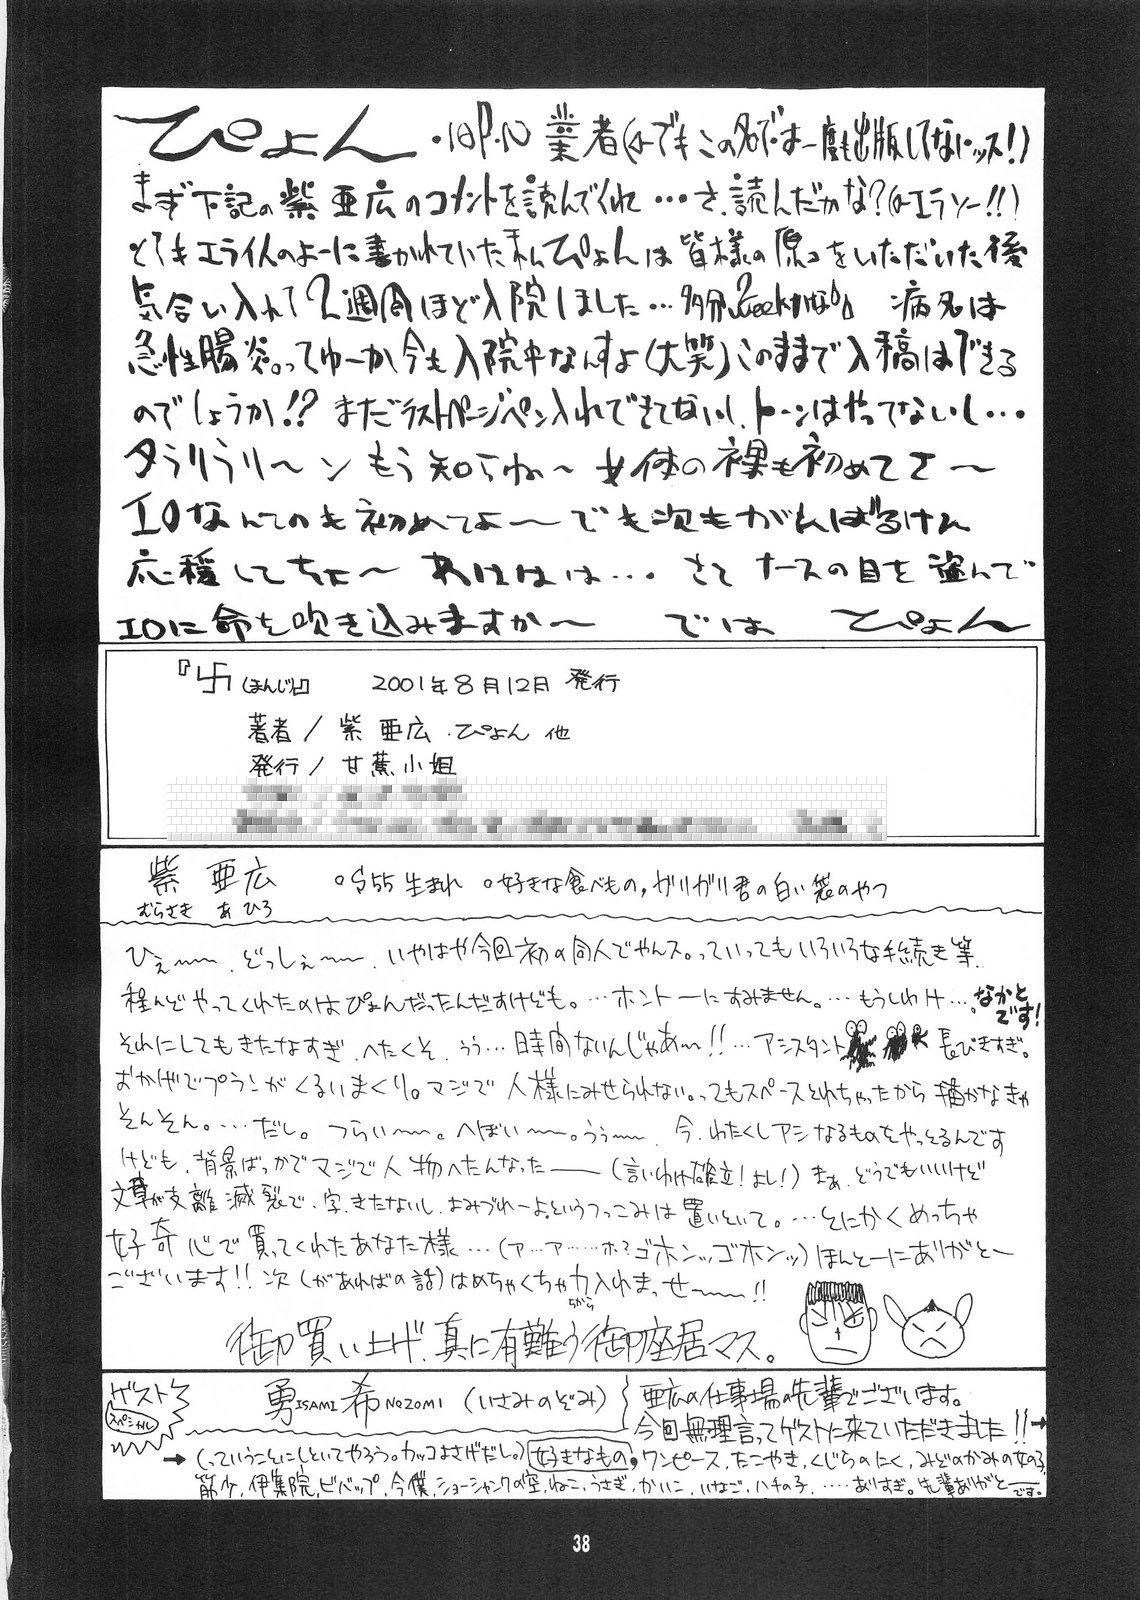 ぴょん 業者(でもこの名では一度も出版してないッス!)
まず下記の紫亜広のコメントを読んでくれ…さ、読んだかな?(エラソー!!)
とてもエライ人のよーに書かれていた私ぴょんは皆様の原コをいただいた後
気合い入れて2週間ほど入院しました…多分 病名は
急性腸炎。ってゆーか今も入院中なんすよ(大笑)このままで入稿はできる
のでしょうか!?まだラストページペン入れできてないし、トーンはやってないし…
タラリラリ〜ン もう知らね〜 女体の裸も初めてさ〜
エロなんてのも初めてよ〜でも次もがんばるけん
応援してちょ〜 あははは…。さて ナースの目を盗んで
エロに命を吹き込みますか〜 では ぴょん
『卐(まんじ)』 2001年8月12日 発行
著者/紫 亜広 .ぴょん 他
発行/甘蕉小姐
紫 亜広 ○S55生まれ ○好きな食べもの,ガリガリ君の白い袋のやつ
むらさき あひろ
ひぇ〜〜、どっしぇ〜〜、いやはや今回初の同人でやんス。っていってもいろいろな手続き等、
殆んどやってくれたのはぴょんだったんだすけども。…ホントーにすみません。…もうしわけ…なかとです!
それにしてもきたなすぎ、へたくそ、うぅ…時間ないんじゃあ〜!!…アシスタント 長びきすぎ。
おかげでプランがくるいまくり。マジで人様にみせられない。ってもスペースとれちゃったから描かなきゃ
そんそん。…だし。つらい〜〜。へぼい〜〜。うぅ〜〜、今、わたくしアシなるものをやっとるんです
けども、背景ばっかでマジで人物へたんなった――(言いわけ確立!よし!)まぁ、どうでもいいけど
文章が支離滅裂で、字、きたないし、よみづれーよ、というつっこみは置いといて。…とにかくめっちゃ
好奇心で買ってくれたあなた様…(ア…ア……ホ?ゴホンッッゴホンッ)ほんとーにありがとー
ございます!!次(があればの話)はめちゃくちゃ力入れまっせ〜〜!!
ちから
御買い上げ、真に有難う御座居マス。
ゲスト
スペシャル
勇ISAMI希NOZOMI(いさみのぞみ)
亜広の仕事場の先輩でございます。
今回無理言ってゲストに来ていただきました!!→
→(っていうことにしといてやろう。カッコよさげだし。)好きなもの,ワンピース、たこやき、くじらのにく、みどりのかみの女の子、
筋少、伊集院、ビバップ、今僕、ショーシャンクの空、ねこ、うさぎ、かいこ、いなご、ハチの子、……ありすぎ。先輩ありがとーです。
38